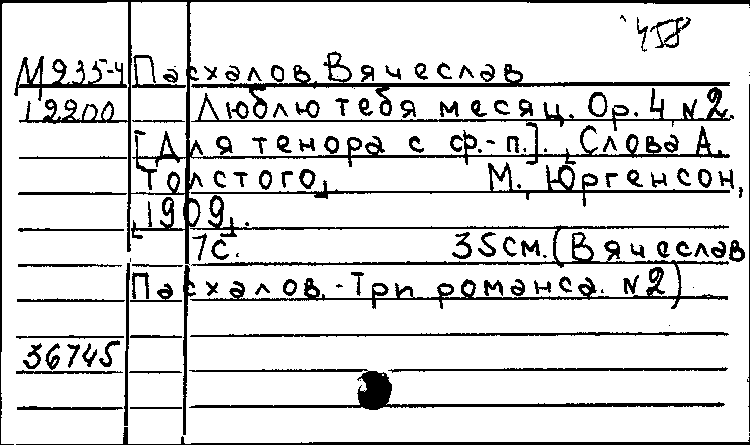 458
М935-4 Пасхалов, Вячеслав
12200 Люблю тебя месяц. Ор. 4, №2.
[Для тенора с ф.-п.]. [Слова А.
Толстого]. М., Юргенсон,
[1909].
7с. 35см. (Вячеслав
Пасхалов. - Три романса. №2)
36745